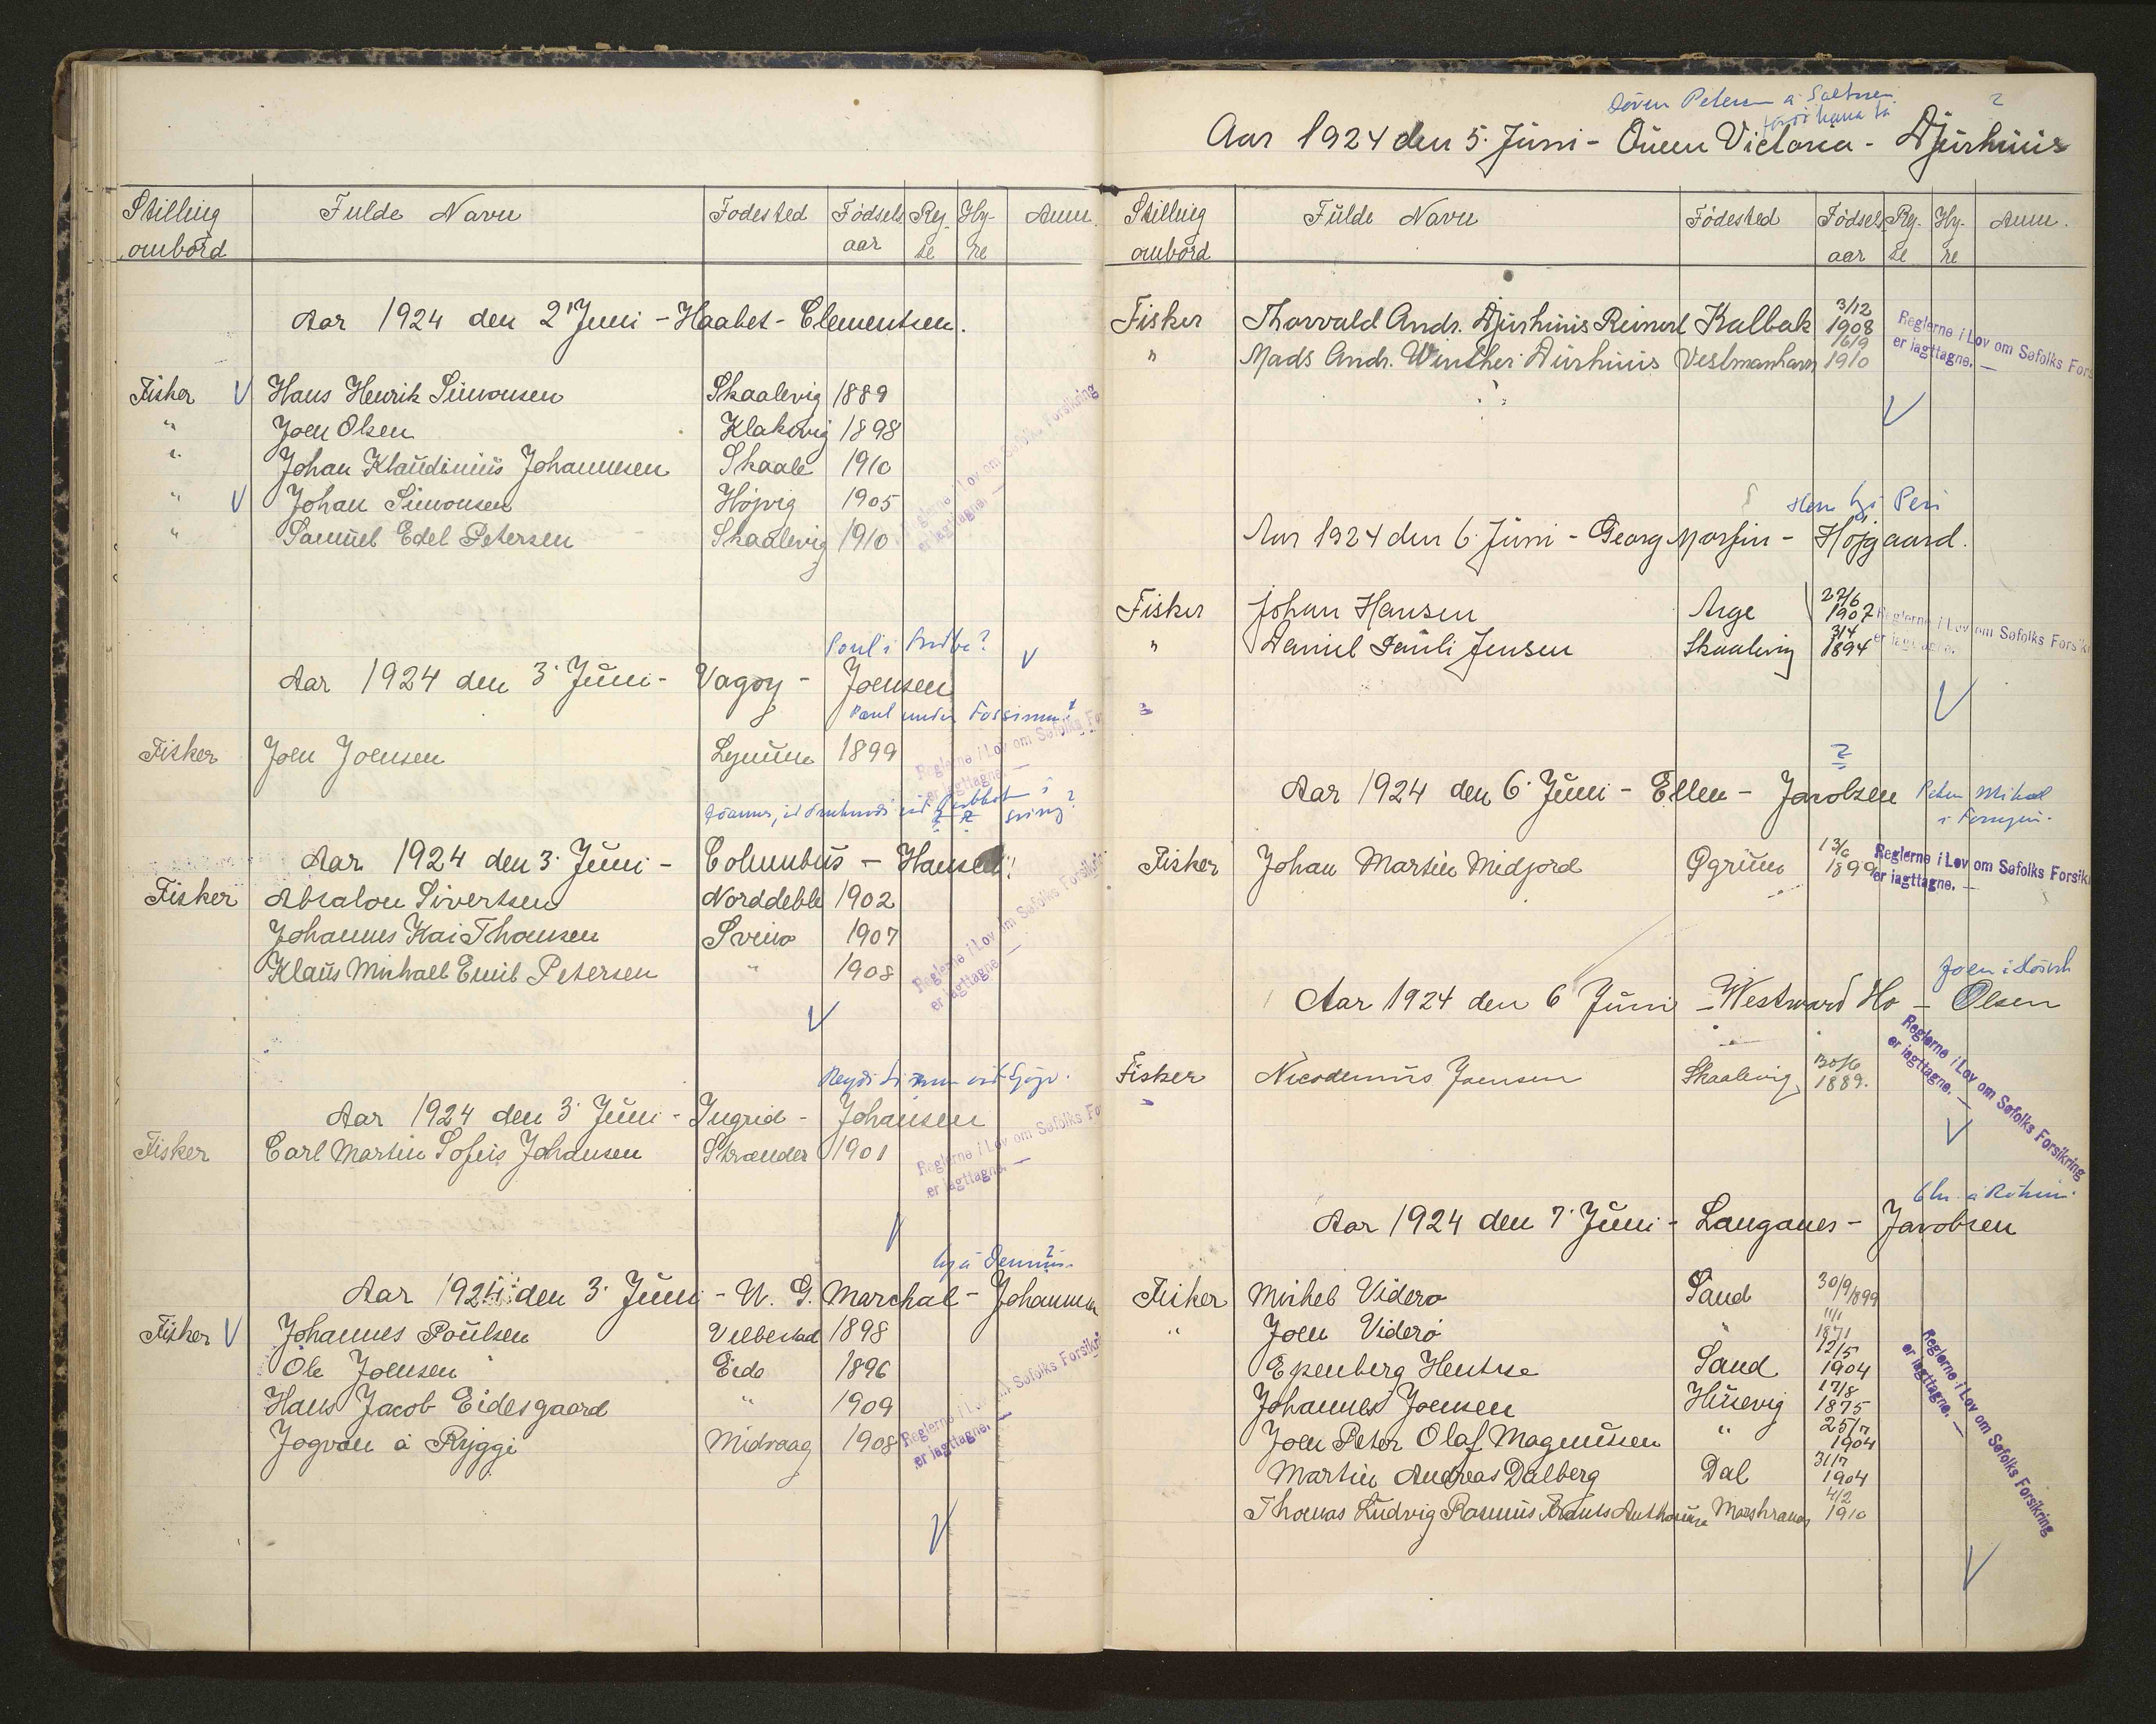 Stilling ombord Fulde Navn Fodested Fødsels aar Rej- se Hy- re Anm.
Aar 1924 den 2' Juni - Haabet - Clementsen.
Fisker Hans Henrik Simonsen Skaalevig 1889
" Joen Olsen Klaksvig 1898
" Johan Klaudinius Johannesen Skaale 1910
" Johan Simonsen Højvig 1905
" Samuel Edel Petersen Skaalevig 1910
Reglerne i Lov om Søfolks Forsikring
er iagttagne. —
Poul i
Aar 1924 den 3' Juni - Vagoy - Joensen
Poul undir
Fisker Joen Joensen Lynum 1899
Reglerne i Lov om Søfolks Fo
er iagttagne. —
Aar 1924 den 3' Juni - Columbus - Hansen
Fisker Absalon Sivertsen Norddeble 1902
Johannes Kai Thomsen Svino 1907
Klaus Michael Emil Petersen " 1908
Reglerne i Lov om Søfolks Forsikrin
er iagttagne. —
Aar 1924 den 3' Juni - Ingrid - Johansen
Fisker Carl Martin Sofus Johansen Strænder 1901
Reglerne i Lov om Søfolks Fo
er iagttagne. —
Aar 1924 den 3' Juni - N. G. Marchal - Johannesen
Fisker Johannes Poulsen Velbestad 1898
Ole Joensen Eide 1896
Hans Jacob Eidesgaard " 1909
Jogvan á Ryggi Midvaag 1908
Reglerne i Lov om Søfolks Forsikri
er iagttagne. —
Søren Petersen á
Aar 1924 den 5. Juni - Queen Victoria - Djurhuus
Stilling ombord Fulde Navn Fødested Fødsels aar Rej- se Hy- re Anm.
Fisker Thorvald Andr. Djurhuus Reinert Kalbak 3/12 1908
" Mads Andr. Winther Durhuus Vestmanhavn 16/9 1910
Reglerne i Lov om Søfolks Fors
er iagttagne. —
Aar 1924 den 6. Juni - Georg Marfin - Højgaard.
Fisker Johan Hansen Arge 27/6 1907
" Daniel Pauli Jensen Skaalevig 3/4 1894
Reglerne i Lov om Søfolks Forsik
er iagttagne.
Aar 1924 den 6' Juni - Ellen - Jacobsen
Fisker Johan Martin Midjord Qgrum 13/6 1899
Reglerne i Lov om Søfolks Forsik
er iagttagne. —
Aar 1924 den 6 Juni - Westward Ho - Olsen
Fisker Nicodemus Joensen Skaalevig 30/6 1889.
Reglerne i Lov om Søfolks Forsikring
er iagttagne. —
Aar 1924 den 7' Juni - Langanes - Jacobsen
Fisker Michel Videro Sand 30/9 1899
" Joen Viderø " 11/1 1871
Epenberg Hentze Sand 12/5 1904
Johannes Joensen Husevig 17/8 1875
Joen Peter Olaf Magnussen " 25/7 1904
Martin Andreas Dalberg Dal 31/7 1904
Thomas Ludvig Rasmus 4/2 1910
Reglerne i Lov om Søfolks Forsikring
er iagttagne. —